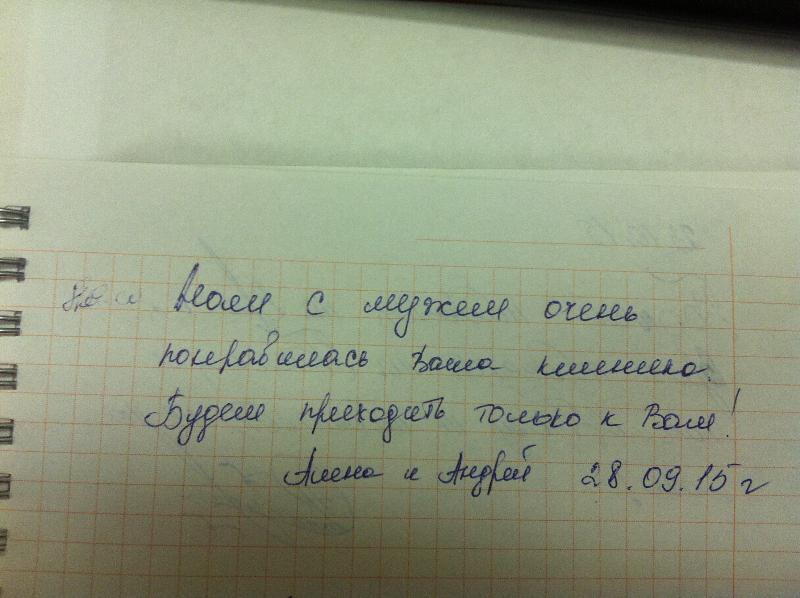 Нам с мужем очень
понравилась Ваша клиника.
Будем приходить только к Вам!
Алена и Андрей 28.09.15 г